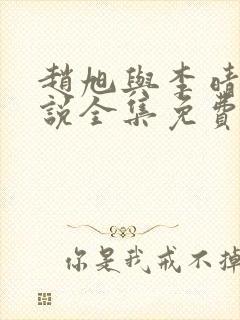 趙旭與李晴
說全集免費
你是我戒不掉